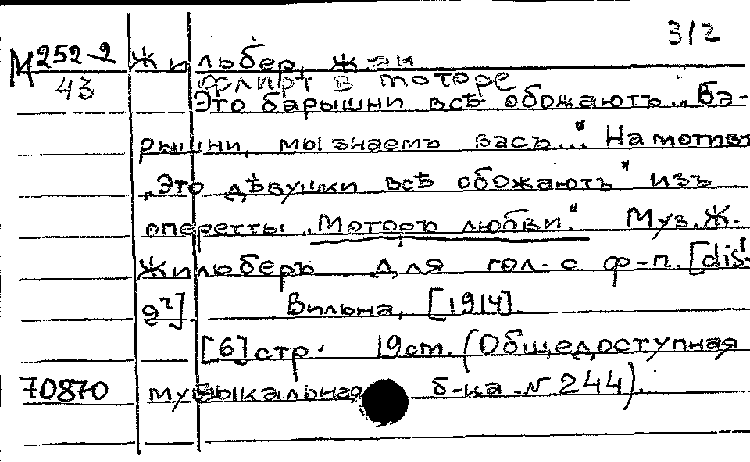 312
М 252-2 Жильбер, Жан
43 Флирт в моторе
Это барышни всѣ обожаютъ. „Ба-
рышни, мы знаемъ васъ..." На мотивъ
„Это дѣвушки всѣ обожаютъ" изъ
оперетты „Моторъ любви." Муз. Ж.
Жильберъ для гол. с ф-п. [dis¹-
g²]. Вильна, [1914].
[6] стр. 19cm. (Общедоступная
70870 музыкальная б-ка № 244).